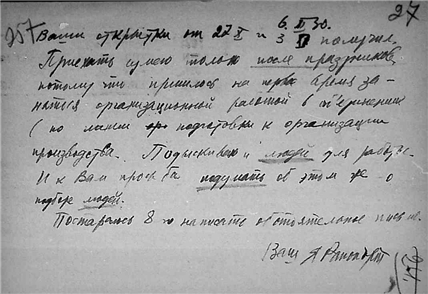 27
6.XI.30.
257 Ваши открытки от 27 X и 3 XI получил.
Приехать сумею только после праздников,
потому что пришлось на первое время за-
няться организационной работой в
(по линии подготовки к организации
производства. Подыскиваю людей для работы.
И к Вам просьба подумать об этом же - о
подборе людей.
Постараюсь 8-го написать обстоятельное письмо.
Ваш Я Рапопорт